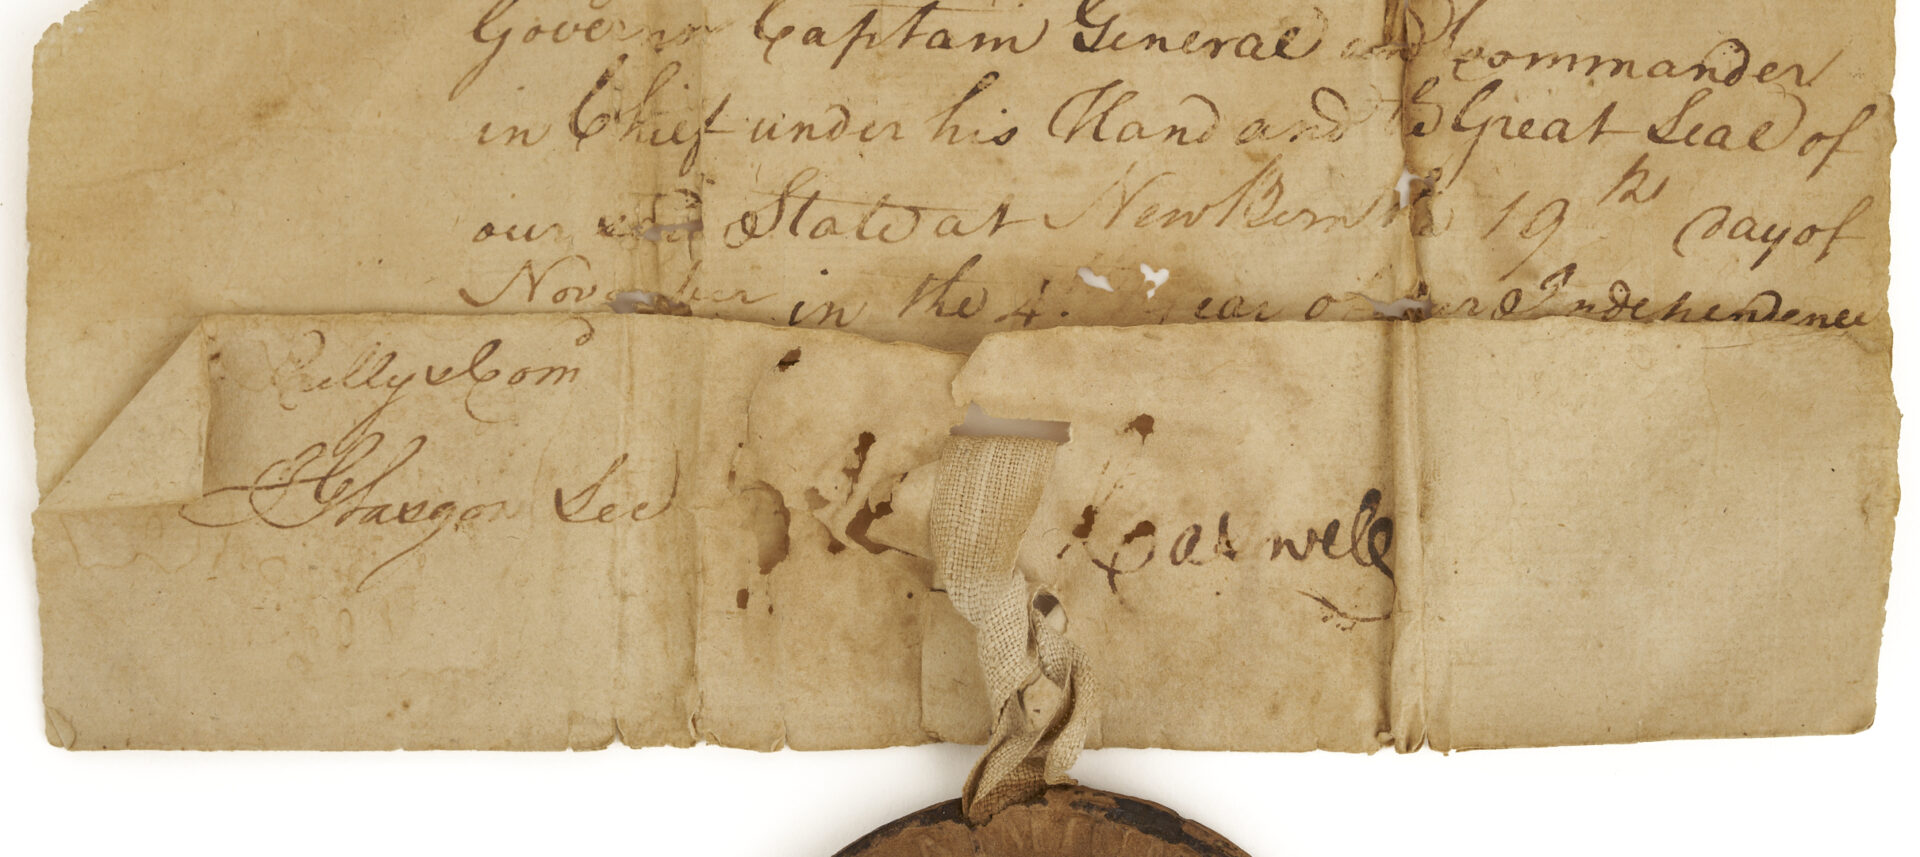 Governr Captain General and Commander
in Chief under his Hand and the Great Seal of
our said State at New Bern the 19th Day of
November in the 4th Year of our Independence
By his Excelly's Com'd
J Glasgow Sec
Rd Caswell